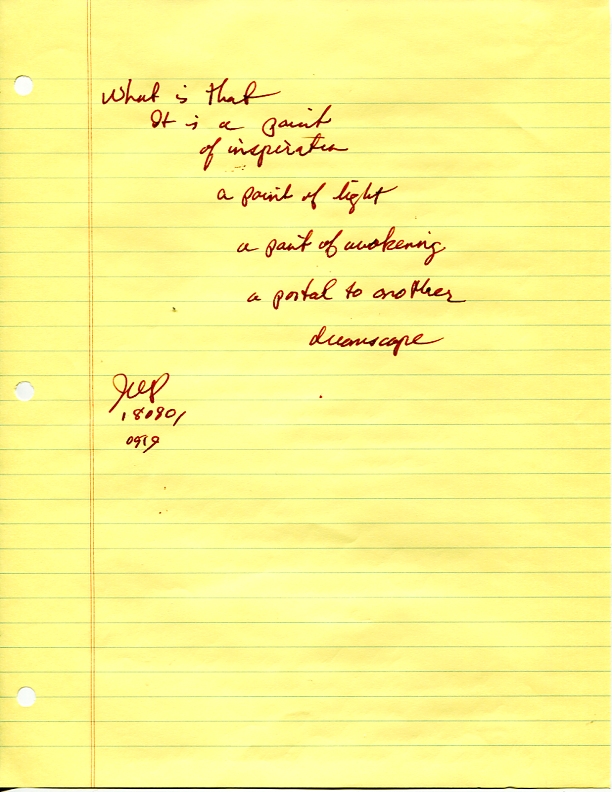 What is that
It is a point
of inspiration
a point of light
a point of awakening
a portal to another
dreamscape
180801
0919